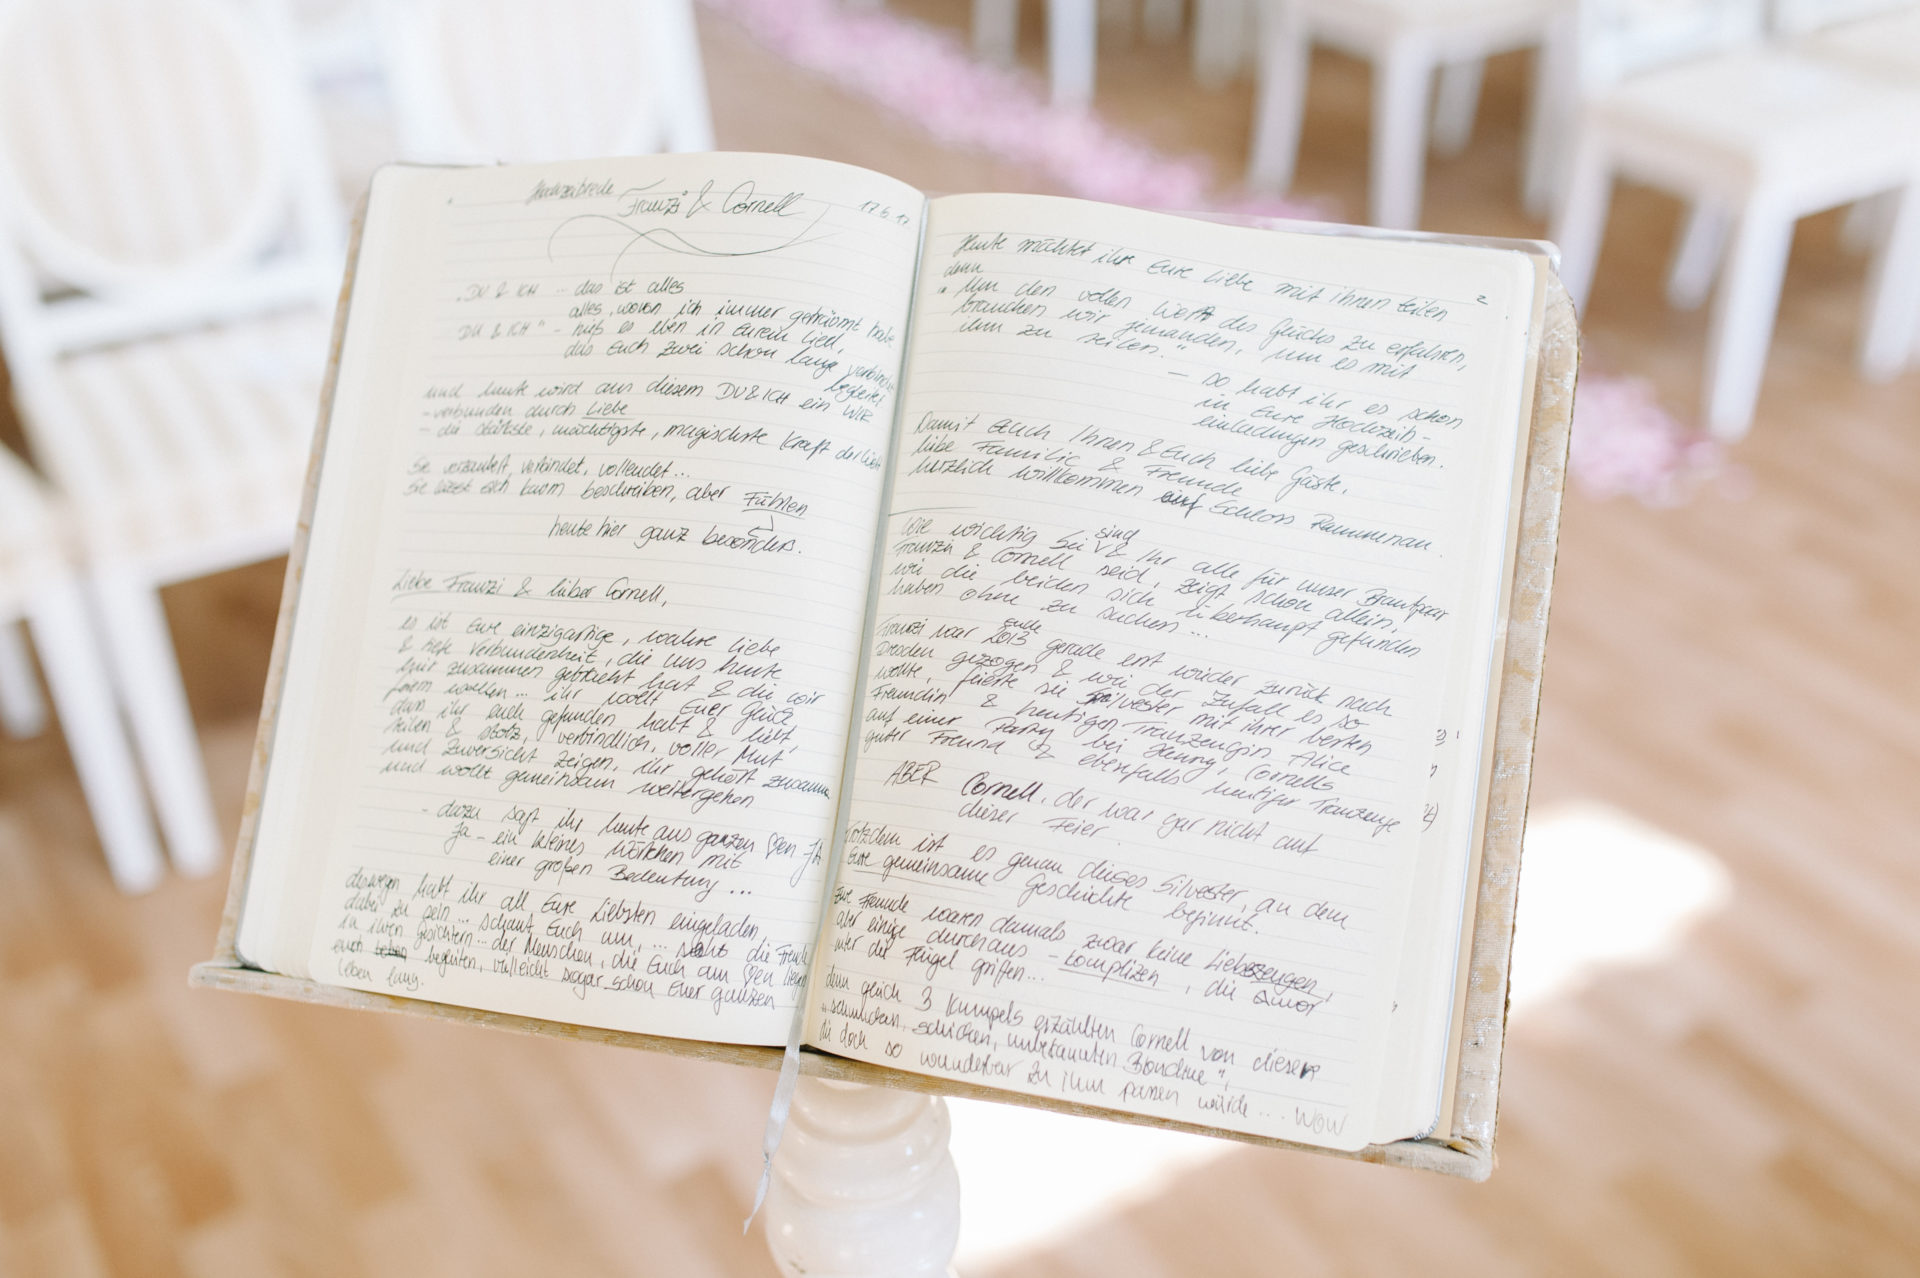 Hochzeitsrede Franzi & Cornell 17.6.17
„DU & ICH - das ist alles
alles, wovon ich immer geträumt habe
DU & ICH" - hieß es eben in Eurem Lied,
das Euch zwei schon lange verbindet
begleitet
und heute wird aus diesem DU & ICH ein WIR
- verbunden durch Liebe
- die stärkste, mächtigste, magischste Kraft der Welt
Sie verzaubert, verbindet, vollendet...
Sie lässt sich kaum beschreiben, aber Fühlen
heute hier ganz besonders.
Liebe Franzi & lieber Cornell,
es ist Eure einzigartige, wahre Liebe
& tiefe Verbundenheit, die uns heute
hier zusammen gebracht hat & die wir
feiern wollen... ihr wollt Euer Glück,
dass ihr euch gefunden habt & liebt,
teilen & stolz, verbindlich, voller Mut
und Zuversicht zeigen, ihr gehört zusammen
und wollt gemeinsam weitergehen
- dazu sagt ihr heute aus ganzem ♡en JA
Ja - ein kleines Wörtchen mit
einer großen Bedeutung ...
deswegen habt ihr all Eure Liebsten eingeladen,
dabei zu sein... schaut Euch um, ... seht die Freude
in ihren Gesichtern... der Menschen, die Euch am ♡en liegen
euch begleiten, vielleicht sogar schon Euer ganzen
Leben lang.
2
Heute möchtet ihr Eure Liebe mit ihnen teilen
denn
„Um den vollen Wert des Glücks zu erfahren,
brauchen wir jemanden, um es mit
ihm zu teilen."
- so habt ihr es schon
in Eure Hochzeits-
einladungen geschrieben.
Damit Euch Ihnen & Euch liebe Gäste,
liebe Familie & Freunde
herzlich willkommen auf Schloss Rammenau.
Wie wichtig Sie sind & Ihr alle für unser Brautpaar
Franzi & Cornell seid, zeigt schon allein,
wie die beiden sich überhaupt gefunden
haben ohne zu suchen...
Franzi war Ende 2013 gerade erst wieder zurück nach
Dresden gezogen & wie der Zufall es so
wollte, feierte sie Silvester mit ihrer besten
Freundin & heutigen Trauzeugin Alice
auf einer Party bei Henny, Cornells
guter Freund & ebenfalls heutiger Trauzeuge
ABER Cornell, der war gar nicht auf
dieser Feier.
Trotzdem ist es genau dieses Silvester, an dem
Eure gemeinsame Geschichte beginnt.
Eure Freunde waren damals zwar keine Liebeszeugen,
aber einige durchaus - Komplizen, die Amor
unter die Flügel griffen...
denn gleich 3 Kumpels erzählten Cornell von dieser
schicken, unbekannten Blondine",
die doch so wunderbar zu ihm passen würde ... WOW